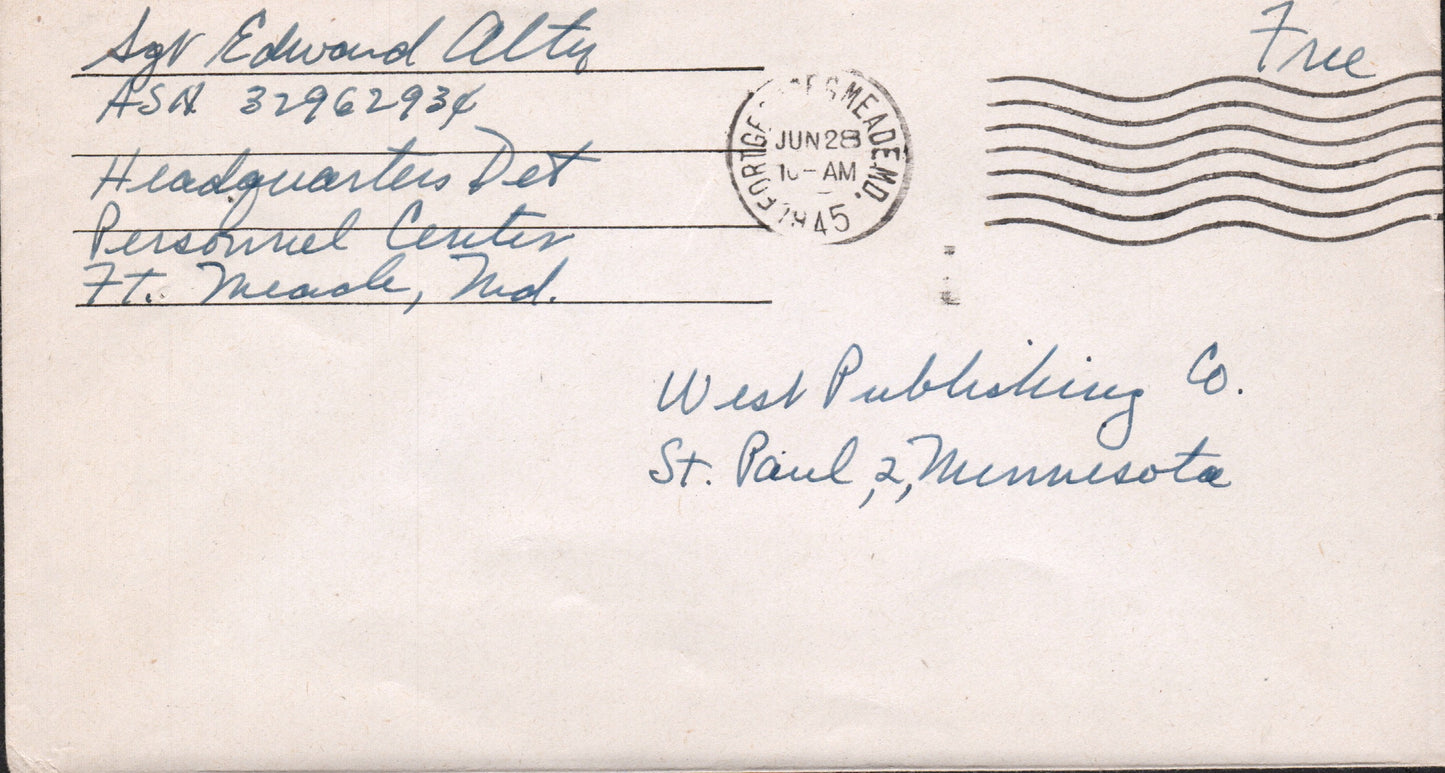 Sgt Edward Alty
ASN 32962934
Headquarters Det
Personnel Center
Ft. Meade, Md.
Free
MEADE, MD.
JUN 28
10-AM
1945
West Publishing Co.
St. Paul, 2, Minnesota